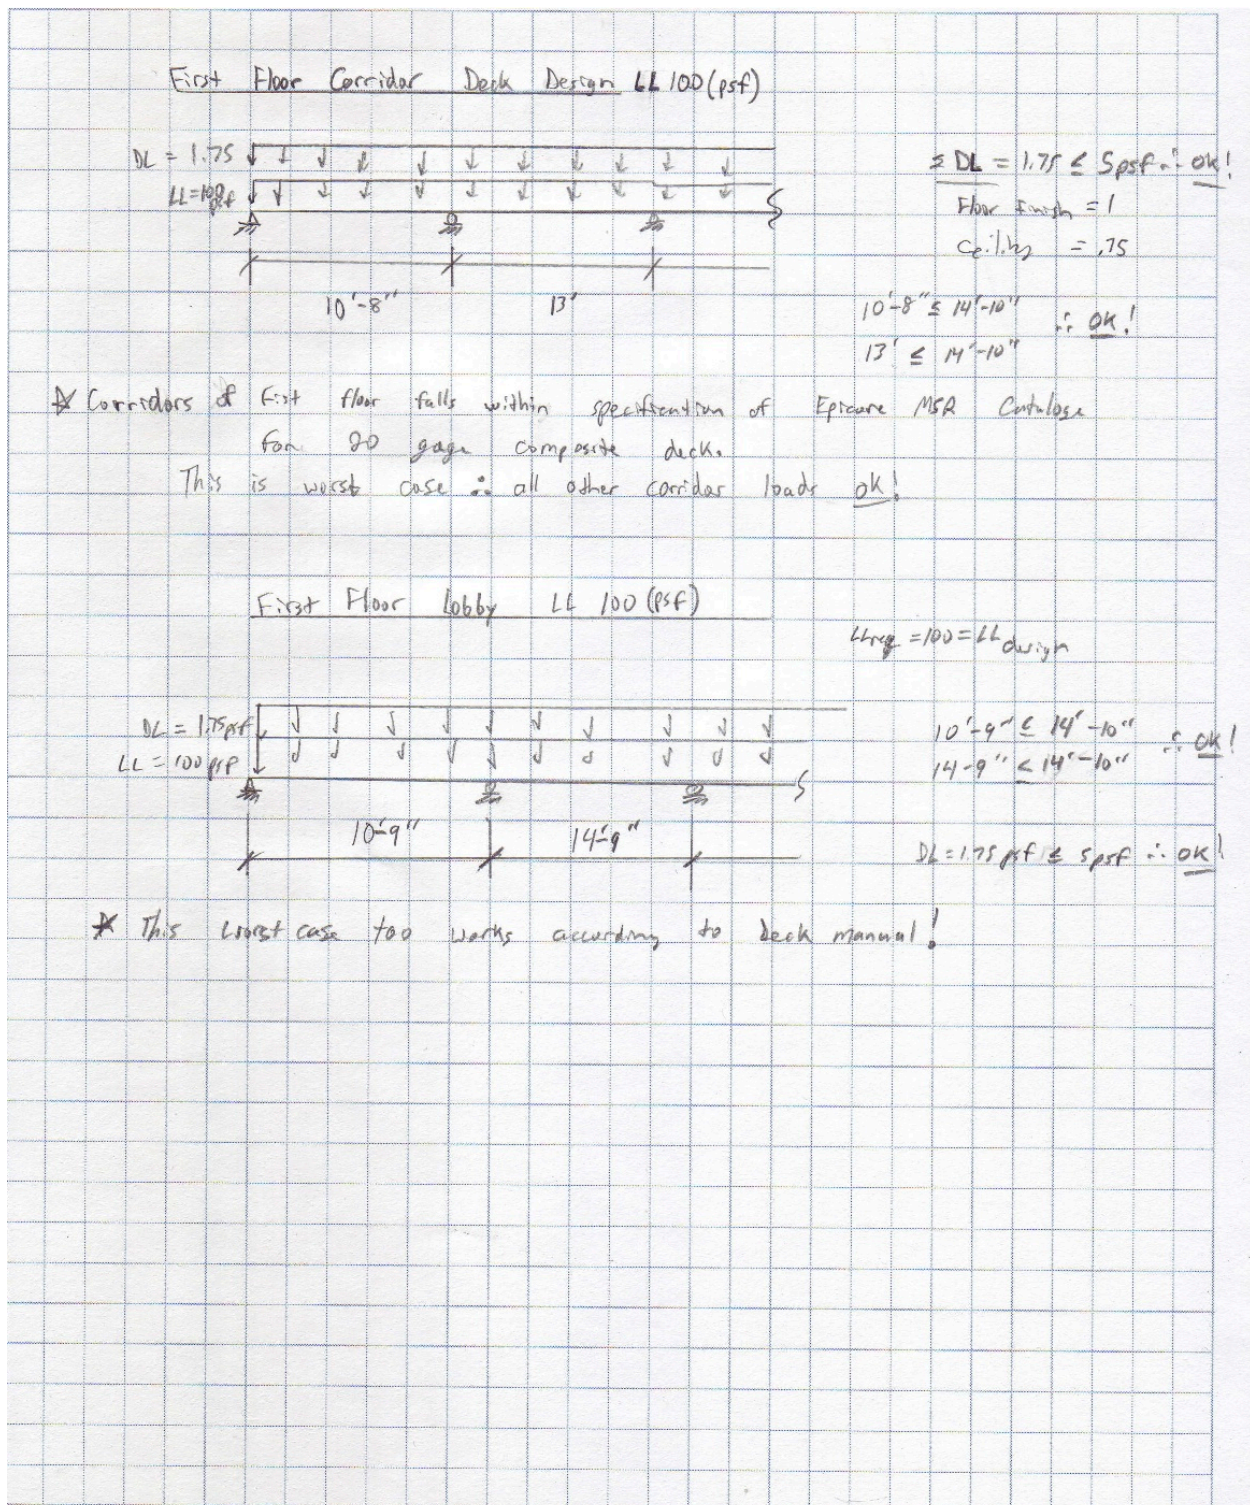 First Floor Corridor Deck Design LL 100 (psf)
DL = 1.75
LL=100 psf
Σ DL = 1.75 ≤ 5psf ∴ OK!
Floor Finish = 1
Ceiling = .75
10'-8" 13'
10'-8" ≤ 14'-10" ∴ OK!
13' ≤ 14'-10"
* Corridors of First floor falls within specification of Epicore MSR Cataloge
for 20 gage composite deck.
This is worst case ∴ all other corridor loads OK!
First Floor Lobby LL 100 (psf)
LLreq = 100 = LL design
DL = 1.75psf
LL = 100 psf
10'-9" ≤ 14'-10" ∴ OK!
14'-9" ≤ 14'-10"
10'-9" 14'-9"
DL = 1.75 psf ≤ 5psf ∴ OK!
* This worst case too works according to Deck manual!